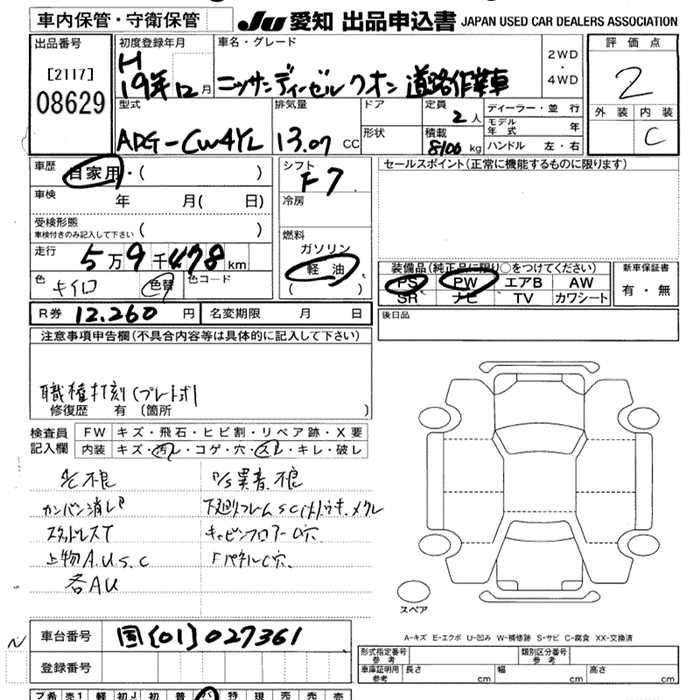 車内保管・守衛保管
JU 愛知 出品申込書 JAPAN USED CAR DEALERS ASSOCIATION
出品番号
[2117]
08629
初度登録年月
H
19年12月
車名・グレード
ニッサンディーゼル クオン 道路作業車
2WD
・
4WD
評価点
2
外装 内装
C
型式
ADG-CW4YL
排気量
13.07 CC
ドア
形状
定員
2人
積載
8100 kg
ディーラー・並行
モデル年式 年
ハンドル 左・右
車歴
自家用・( )
車検
年 月( 日)
受検形態
車検付きのみ記入して下さい ( )
走行
5万9千478km
色
キイロ
色替
色コード
シフト
F7
冷房
燃料
ガソリン
軽油
( )
セールスポイント(正常に機能するものに限ります)
装備品(純正品に限り○をつけてください)
PS PW エアB AW
SR ナビ TV カワシート
新車保証書
有・無
R券 12.260円
名変期限 月 日
後日品
注意事項申告欄(不具合内容等は具体的に記入して下さい)
職権打刻(プレート
修復歴 有(箇所 )
検査員
記入欄
FW キズ・飛石・ヒビ割・リペア跡・X要
内装 キズ・汚レ・コゲ・穴・スレ・キレ・破レ
不良
P/S異音、不良
カンバン消し
スタットレスT
キャビンフロアーC穴
上物A.U.S.C
FパネルC穴
各AU
スペア
A-キズ E-エクボ U-凹み W-補修跡 S-サビ C-腐食 XX-交換済
車台番号
国[01]027361
登録番号
形式指定番号
参考
類別区分番号
参考
車庫証明用
参考
長さ cm 幅 cm 高さ cm